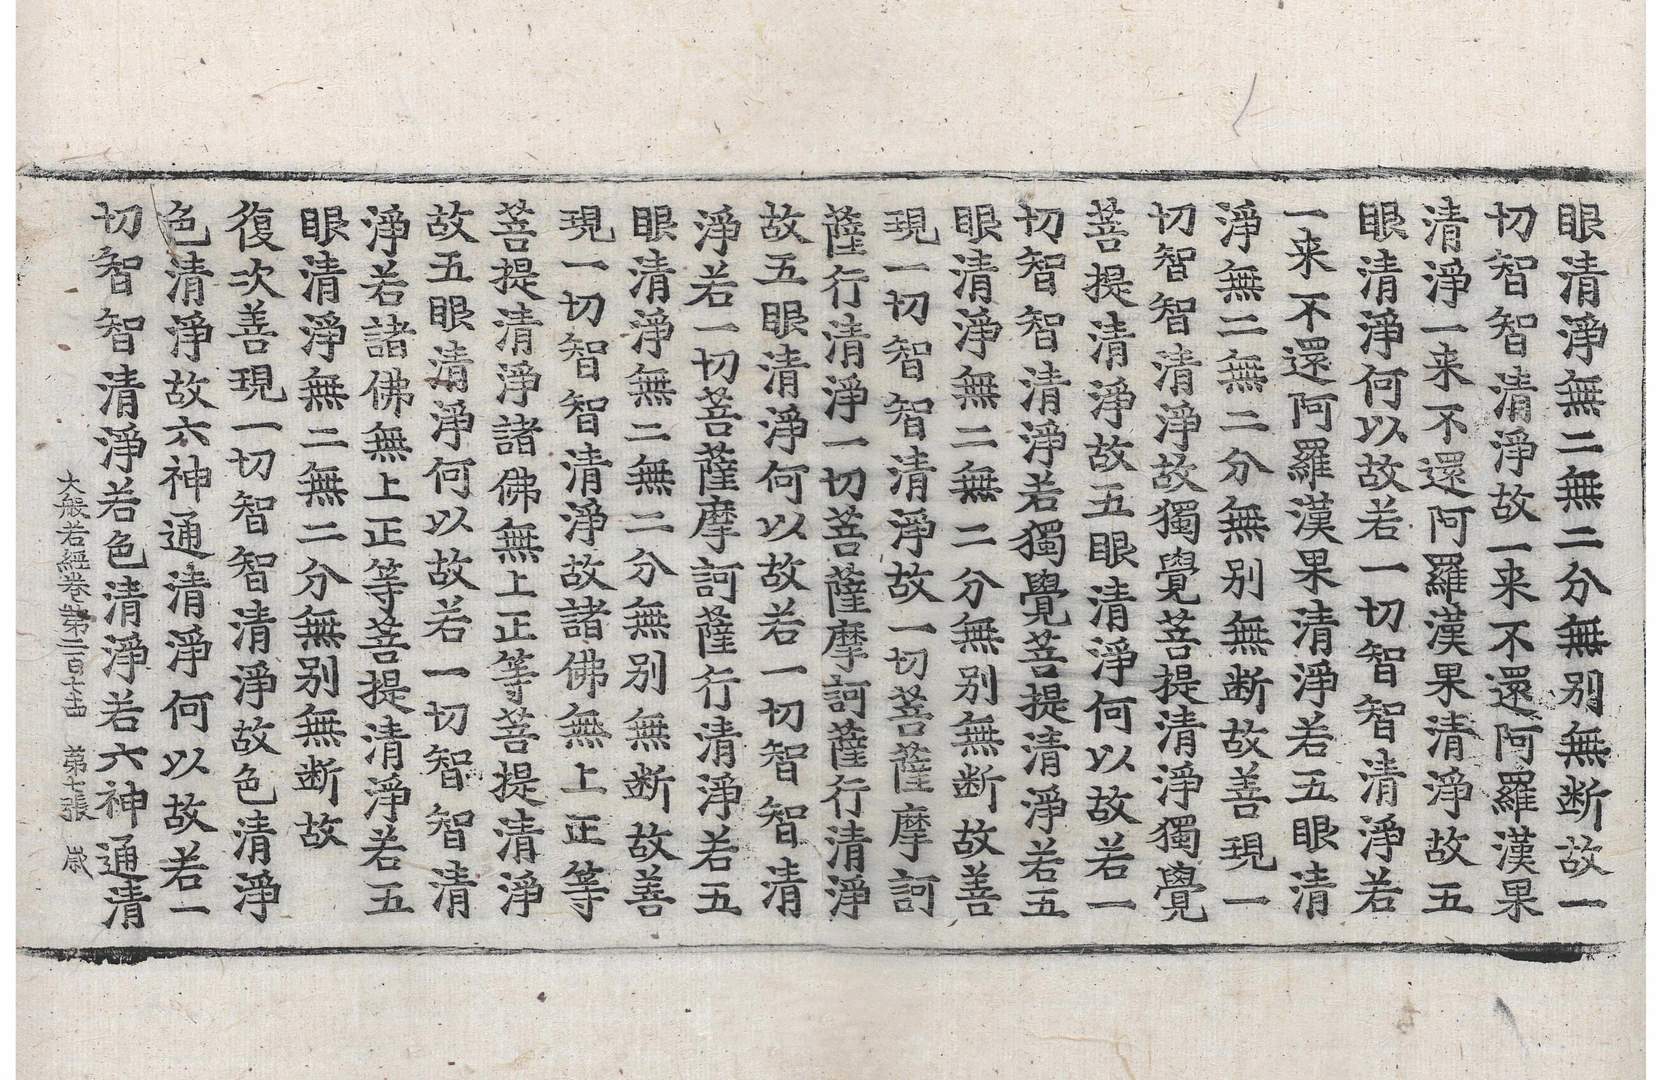 眼清淨無二無二分無別無断故一
切智智清淨故一来不還阿羅漢果
清淨一来不還阿羅漢果清淨故五
眼清淨何以故若一切智智清淨若
一来不還阿羅漢果清淨若五眼清
淨無二無二分無別無断故善現一
切智智清淨故獨覺菩提清淨獨覺
菩提清淨故五眼清淨何以故若一
切智智清淨若獨覺菩提清淨若五
眼清淨無二無二分無別無断故善
現一切智智清淨故一切菩薩摩訶
薩行清淨一切菩薩摩訶薩行清淨
故五眼清淨何以故若一切智智清
淨若一切菩薩摩訶薩行清淨若五
眼清淨無二無二分無別無断故善
現一切智智清淨故諸佛無上正等
菩提清淨諸佛無上正等菩提清淨
故五眼清淨何以故若一切智智清
淨若諸佛無上正等菩提清淨若五
眼清淨無二無二分無別無断故
復次善現一切智智清淨故色清淨
色清淨故六神通清淨何以故若一
切智智清淨若色清淨若六神通清
大般若經卷第二百七十四 第七張 歲